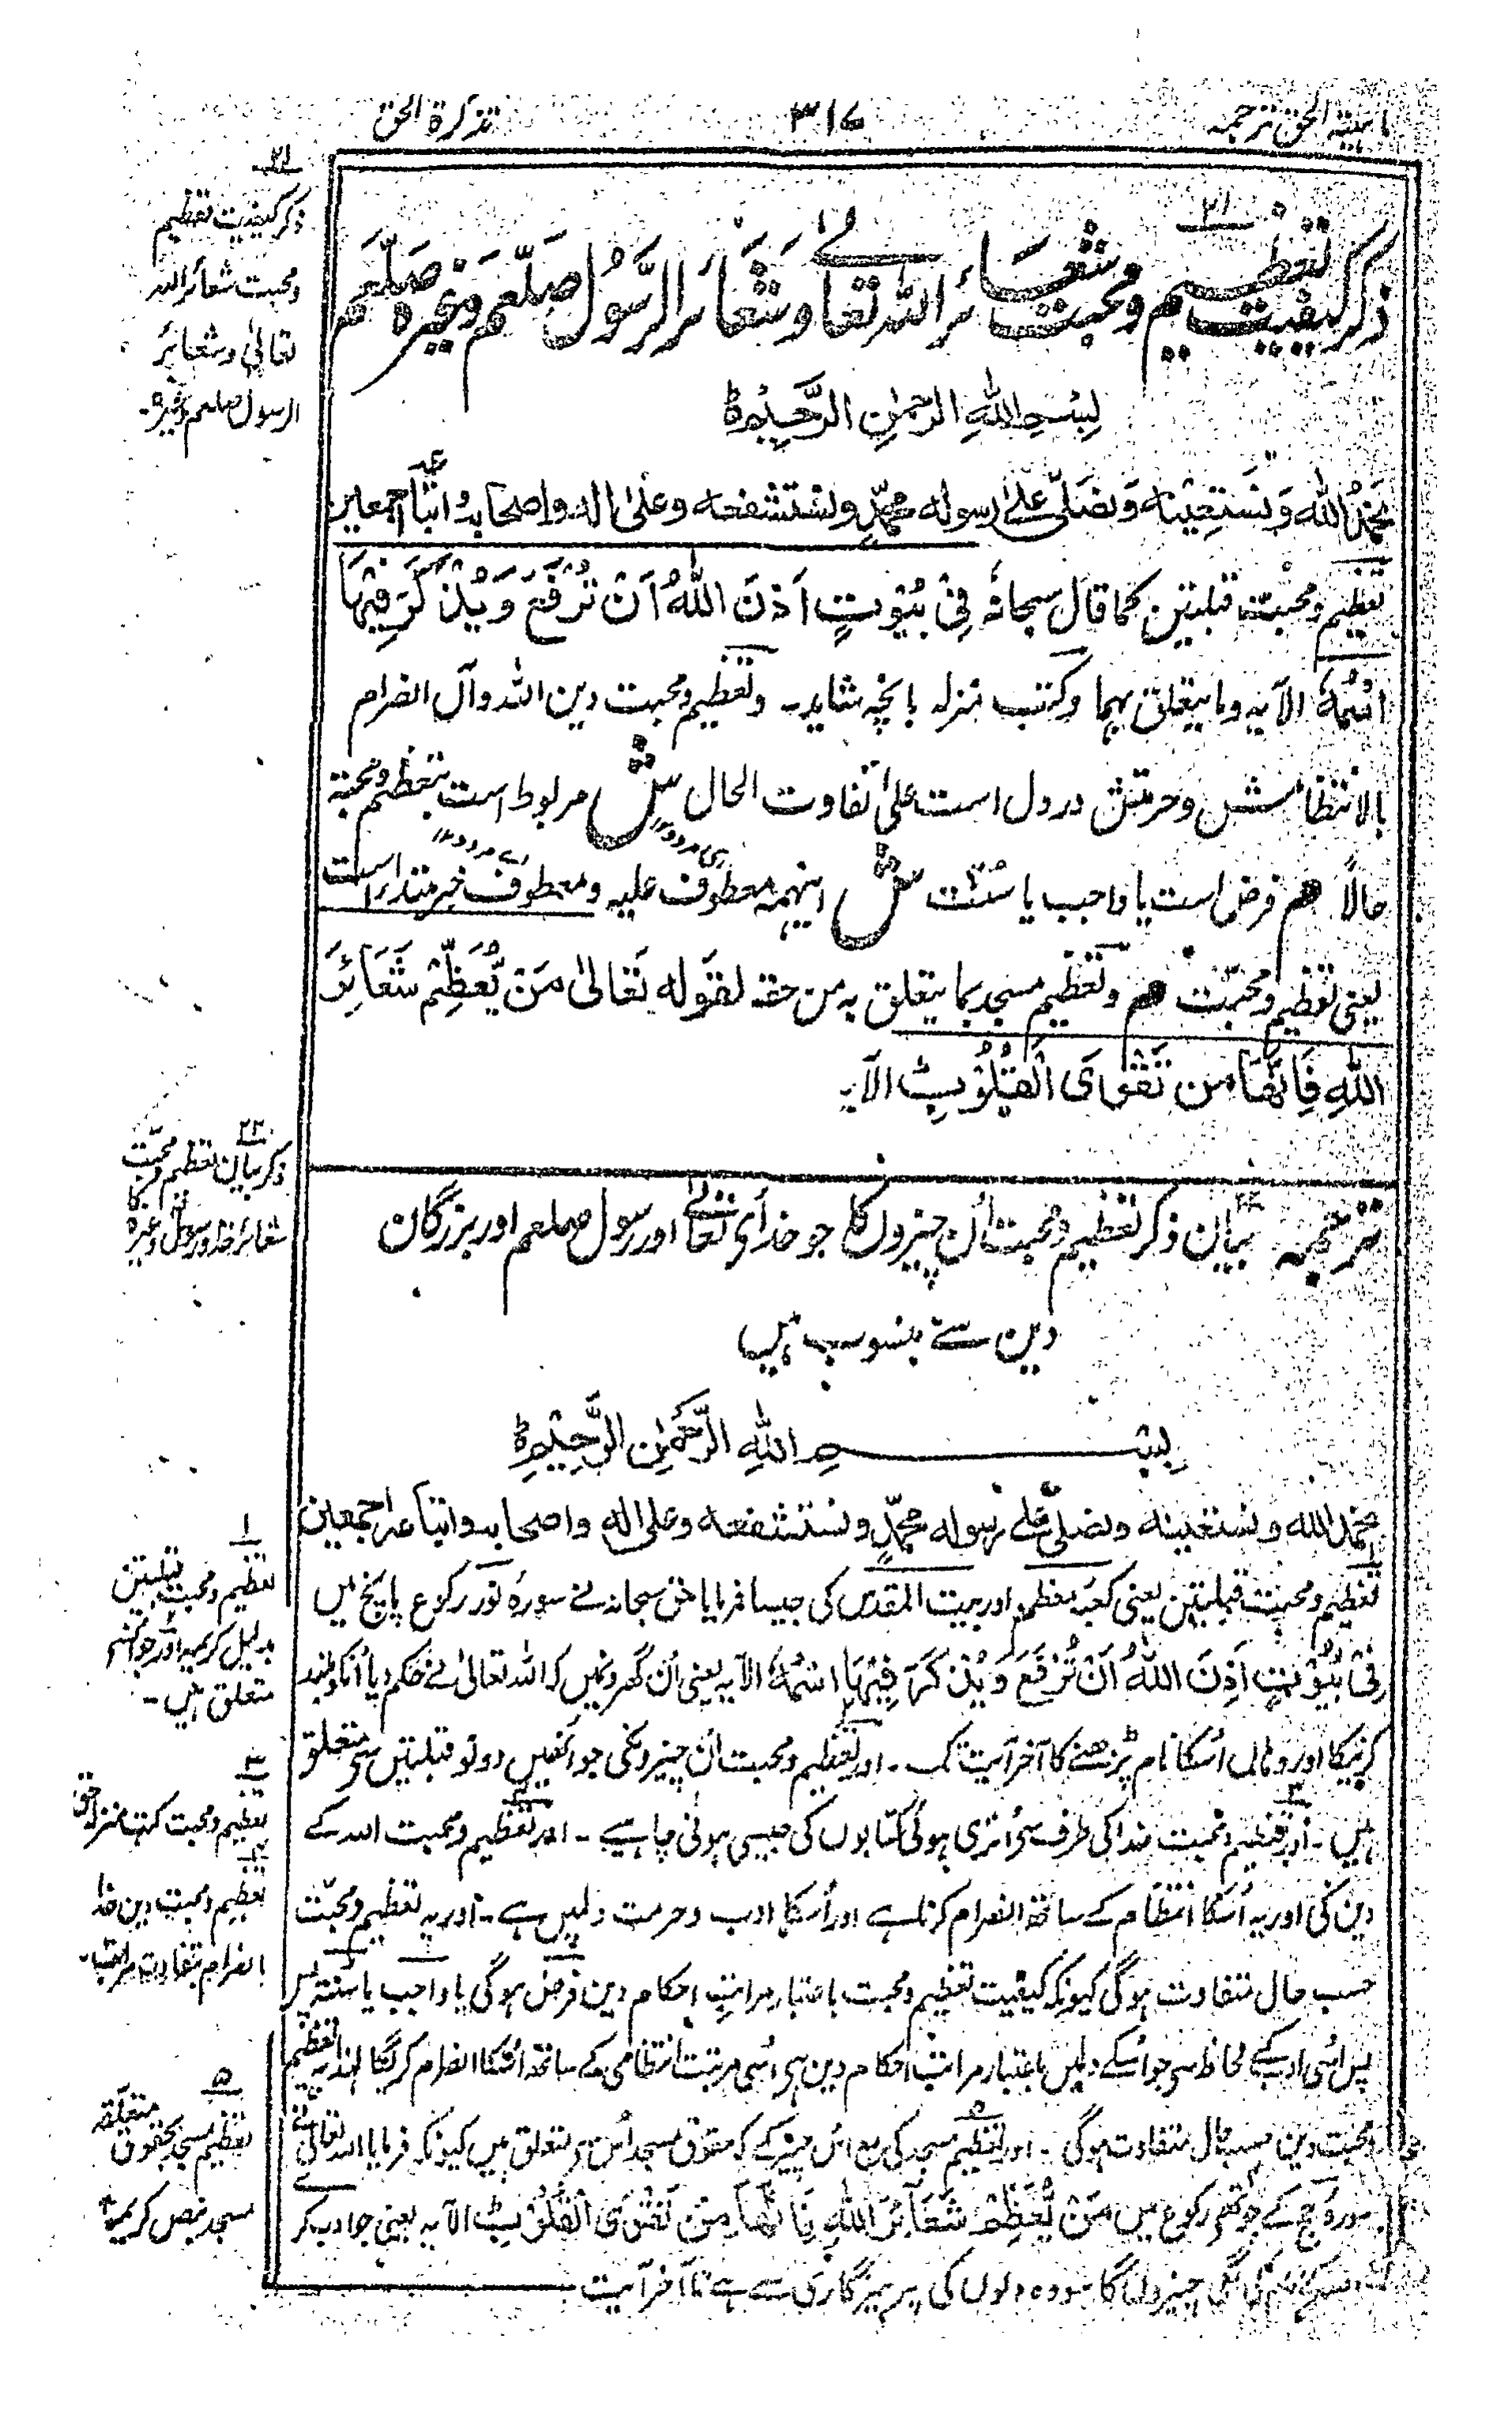 ترجمہ
۳۱۶
تذکرۃ الحق
۲۱
ذکر کیفیت تعظیم
ومحبت شعائر اللہ
تعالیٰ وشعائر
الرسول صلعم وغیرہ۔
ذکر کیفیت تعظیم ومحبت شعائر اللہ تعالے وشعائر الرسول صلعم وغیرہ صلعم
بسم اللہ الرحمن الرحیم ۃ
نحمد اللہ ونستعینہ ونصلی علیٰ رسولہ محمد ونستشفعہ وعلیٰ الہ واصحابہ واتباعہ اجمعین
تعظیم ومحبت قبلتین کما قال سبحانہ فِیْ بُیُوْتٍ اَذِنَ اللہُ اَنْ تُرْفَعَ وَیُذْکَرَ فِیْہَا
اسْمُہٗ الآیہ وما یتعلق بہما وکتب منزلہ بانچہ شاید۔ وتعظیم ومحبت دین اللہ وآں انضرام
بالانتظامش وحرمتش در دل است علیٰ تفاوت الحال ش مربوط است بتعظیم ومحبۃ
حالاً ھم فرض است یا واجب یا سنت ش اینہمہ معطوف علیہ ومعطوف خبر مبتدا است
یعنی تعظیم ومحبت ھم وتعظیم مسجد بما یتعلق بہ من حقہ لقولہ تعالیٰ مَنْ یُّعَظِّمْ شَعَائِرَ
اللہِ فَاِنَّھَا مِنْ تَقْوَی الْقُلُوْبِ الآیہ
۲۲
ذکر بیان تعظیم ومحبت
شعائر خدا ورسول وغیرہ کا
ترجمہ بیان ذکر تعظیم ومحبت اُن چیزوں کا جو خدای تعالے اور رسول صلعم اور بزرگان
دین سے منسوب ہیں
بسم اللہ الرحمن الرحیم ۃ
نحمد اللہ ونستعینہ ونصلی علے رسولہ محمد ونستشفعہ وعلی الہ واصحابہ واتباعہ اجمعین
تعظیم ومحبت قبلتین یعنی کعبہ معظم اور بیت المقدس کی جیسا فرمایا حق سبحانہ نے سورۂ نور رکوع پانچ میں
فِیْ بُیُوْتٍ اَذِنَ اللہُ اَنْ تُرْفَعَ وَیُذْکَرَ فِیْہَا اسْمُہٗ الآیہ یعنی اُن گھرونمیں کہ اللہ تعالیٰ نے حکم دیا اُنکو بلند
کرنیکا اور وہاں اُسکا نام پڑھنے کا آخر آیت تک۔ اور تعظیم ومحبت اُن چیزونکی جو اُنھیں دونو قبلتیں سی متعلق
ہیں۔ اور تعظیم ومحبت خدا کی طرف سی اُتری ہوئی کتابوں کی جیسی ہونی چاہیے۔ اور تعظیم ومحبت اللہ کے
دین کی اور یہ اُسکا انتظام کے ساتھ انضرام کرنا ہے اور اُسکا ادب وحرمت دلمیں ہے۔ اور یہ تعظیم ومحبت
حسب حال متفاوت ہوگی کیونکہ کیفیت تعظیم ومحبت باعتبار مراتب احکام دین فرض ہوگی یا واجب یا سنت پس
پس اُسی ادب کے لحاظ سی جو اُسکے دلمیں باعتبار مراتب احکام دین ہی اُسی مرتبت انتظامی کے ساتھ اُسکا انضرام کریگا لہذا یہ تعظیم
ومحبت دین حسب حال متفاوت ہوگی۔ اور تعظیم مسجد کی مع اُس چیز کے کہ حقوق مسجد اُس پر متعلق ہیں کیونکہ فرمایا اللہ تعالیٰ نے
سورۂ حج کے چوتھی رکوع میں مَنْ یُّعَظِّمْ شَعَائِرَ اللہِ فَاِنَّھَا مِنْ تَقْوَی الْقُلُوْبِ الآیہ یعنی جو ادب کرے
چیزوں کا سو وہ دلوں کی پرہیزگاری سے ہے تا آخر آیت
۱
تعظیم ومحبت قبلتین
بدلیل کریمہ اور جو اُنسے
متعلق ہیں۔
۲
تعظیم ومحبت کتب منزلہ حق
۳
تعظیم ومحبت دین خدا
انضرام بتفاوت مراتب۔
۵
تعظیم مسجد بحقوق متعلقہ
مسجد بنص کریمہ